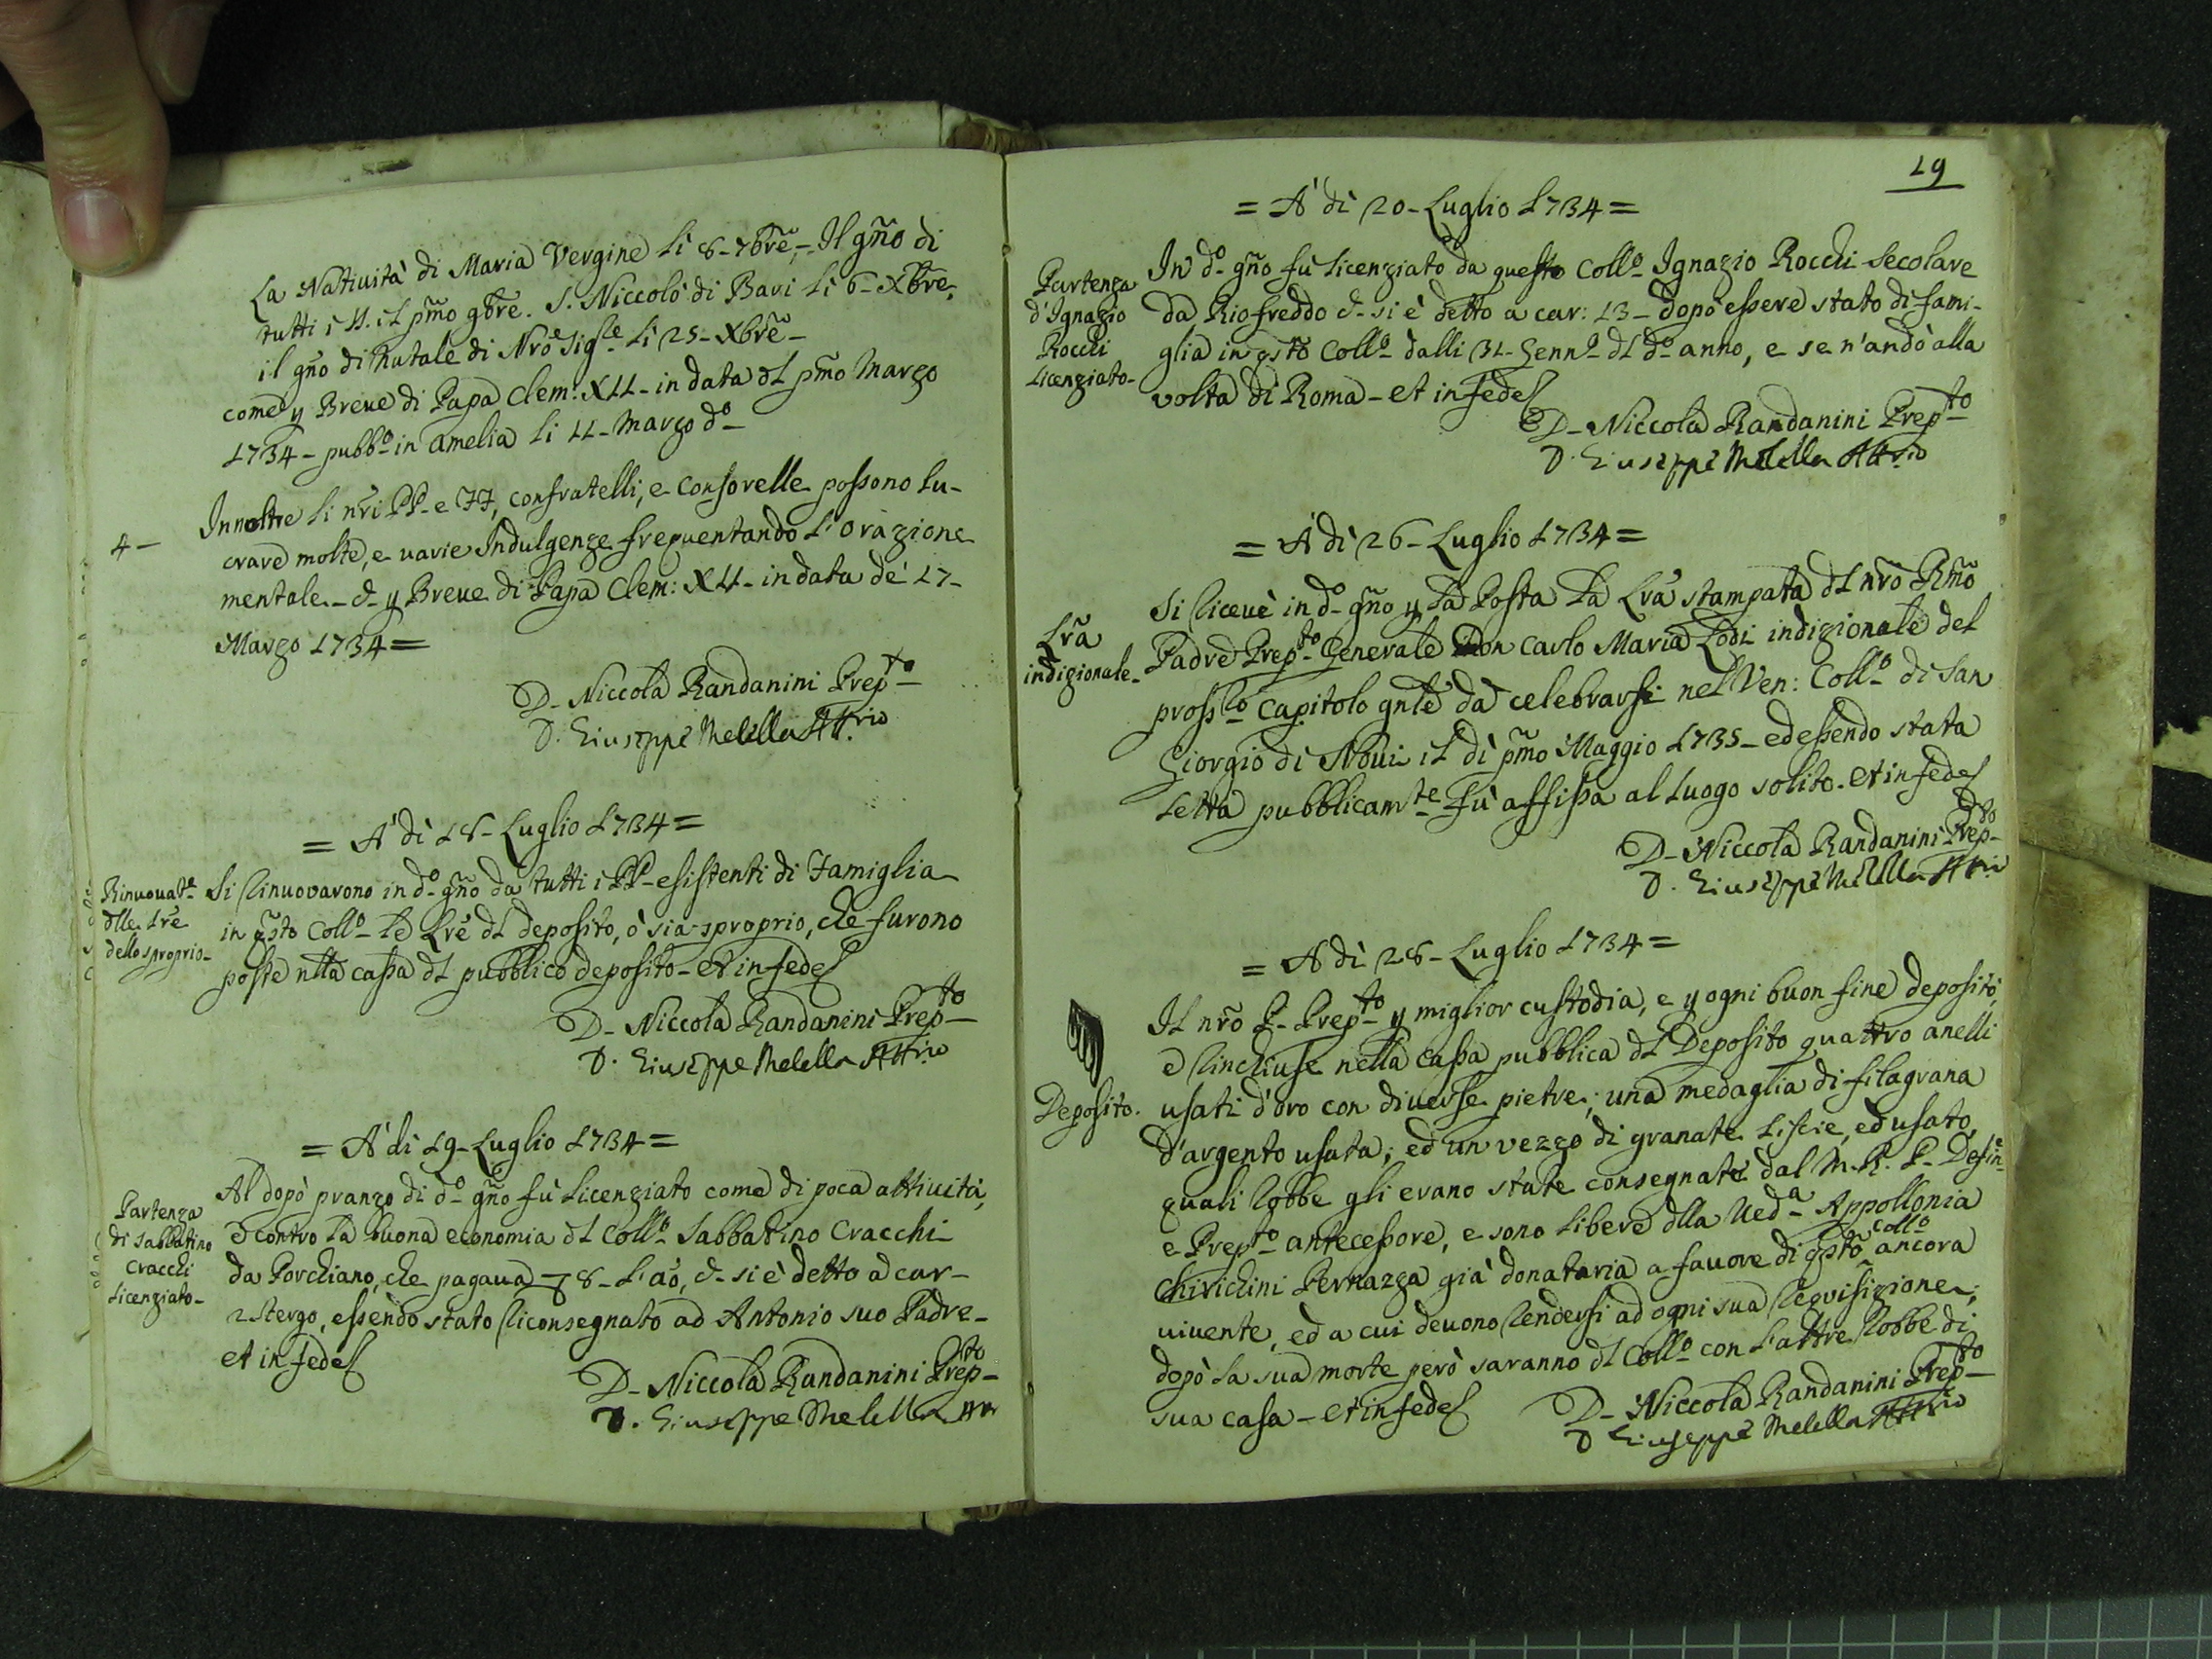 La Natiuità di Maria Vergine li 8-7bre,- Il gño di
tutti i SS. il pmo 9bre. S. Niccolò di Bari li 6- Xbre,
il gño di Natale di Nro Sigre li 25- Xbre-
come p Breue di Papa Clem: XII- in data dl pmo Marzo
1734- pubbo in Amelia li 11- Marzo do-
4-
Innoltre li nri PP- e FF, confratelli, e Consorelle possono lu-
crare molte, e uarie Indulgenze frequentando l'orazione
mentale- &- p Breue di Papa Clem: XII- in data de' 17-
Marzo 1734=
D- Niccola Randanini Prepto
D. Giuseppe Melella Attrio
= A' dì 18- Luglio 1734=
Rinuouate
dlle Lre
dello sproprio-
Si rinuovarono in do gño da tutti i PP- esistenti di Famiglia
in qsto Collo le Lre dl deposito, ò sia sproprio, che furono
poste nlla cassa dl pubblico deposito- et in fede
D- Niccola Randanini Prepto
D. Giuseppe Melella Attrio
= A' di 19- Luglio 1734=
Partenza
di Sabbatino
Cracchi
licenziato-
Al dopò pranzo di do gño fù licenziato come di poca attiuità,
e contro la buona economia dl Collo Sabbatino Cracchi
da Porchiano, che pagaua 8- l'ao, &- si è detto a car-
2 tergo, essendo stato riconsegnato ad Antonio suo Padre-
et in fede
D- Niccola Randanini Prepto
D. Giuseppe Melella Attr
19
= A' dì 20- Luglio 1734=
Partenza
d'Ignazio
Rocchi
licenziato-
In do gño fù licenziato da questo Collo Ignazio Rocchi secolare
da Riofreddo &- si è detto a car: 13- dopò essere stato di fami-
glia in qsto Collo dalli 31- Genno dl do anno, e se n'andò alla
volta di Roma- et in fede
D- Niccola Randanini Prepto
D. Giuseppe Melella Attrio
= A' dì 26- Luglio 1734=
Lra
indizionale-
Si riceuè in do gño p la Posta la Lra stampata dl nro Rmo
Padre Prepto Generale Don Carlo Maria Lodi indizionale del
prosso Capitolo gnle da celebrarsi nel Ven: Collo di San
Giorgio di Noui il dì pmo Maggio 1735- ed essendo stata
letta pubblicamte fù affissa al luogo solito. Et in fede
D- Niccola Randanini Prepto
D. Giuseppe Melella Attrio
= A dì 28- Luglio 1734=
Deposito.
Il nro P- Prepto p miglior custodia, e p ogni buon fine depositò,
e rinchiuse nella cassa pubblica dl Deposito quattro anelli
usati d'oro con diuerse pietre; una medaglia di filagrana
d'argento usata; ed un vezzo di granate liscie, ed usato,
quali robbe gli erano state consegnate dal M. R. P- Defin-
e Prepto antecessore, e sono libere dlla Ueda Appollonia
Chirichini Pernazza già donataria a fauore di qsto Collo ancora
uiuente, ed a cui deuono rendersi ad ogni sua requisizione;
dopò la sua morte però saranno dl Collo con l'altre robbe di
sua casa- et in fede
D- Niccola Randanini Prepto
D Giuseppe Melella Attrio